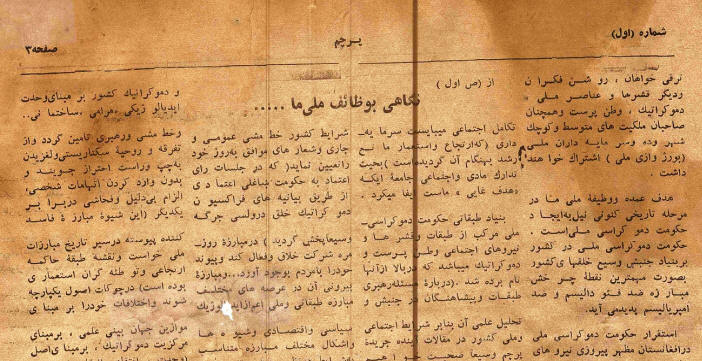 شماره (اول)
پرچم
صفحه ۳
ترقی خواهان ، رو شن فکرا ن
ودیگر قشرها و عناصر ملی
دمو کراتیك ، وطن پرست وهمچنان
صاحبان ملکیت های متوسط وکوچك
شهر وده وسر مایه داران ملی
(بورژ وازی ملی ) اشتراك خوا هند
داشت .
هدف عمده ووظیفة ملی ما در
مرحله تاریخی کنونی نیل به ایجا د
حکومت دمو کراسی ملی است .
حکومت دموکراسی ملی در کشور
بر بنیاد جنبش وسیع خلقهای کشور
بصورت مهمترین نقطة چر خش
مبار زه ضد فئو دالیسم و ضد
امپریالیسم پدیدمی آید.
استقرار حکومت دموکراسی ملی
درافغانستان مظهر پیروزی نیرو های
از (ص اول )
نگاهی بوظائف ملی ما .....
تکامل اجتماعی میبایست سرما یه
داری (که ارتجاع واستعمار ما نع
رشد بهنگام آن گردیده است ) بحیث
تدارك مادی واجتماعی جامعة ایکه
«هدف غایی » ماست ایفا میکرد .
بنیاد طبقاتی حکومت دموکراسی
ملی مرکب از طبقات وقشر ها و
نیروهای اجتماعی وطن پرست و
دموکراتیك میباشد که دربالا ازآنها
نام برده شد .(دربارة مسئله رهبری
طبقات وپیشاهنگان در جنبش و
تحلیل علمی آن بنابر شرایط اجتماعی
وملی کشور در مقالات آینده جریدة
پرچم وسیعا صحبت
شرایط کشور خط مشی عمومی و
جاری وشعار های موافق به روز خود
راتعیین نماید( که در جلسات رای
اعتماد به حکومت
از طریق بیانیه های فراکسیو ن
دمو کراتیك خلق درولسی جرگه
وسیعاپخش گردید ) درمبارزة روز
مره شرکت خلاق وفعال کند وپیوند
خودرا بامردم بوجود آورد... ومبارزة
بیرونی آن در عرصه های مختلف
مبارزه طبقاتی وملی اعم از
سیاسی واقتصادی وشیو ه ها
واشکال مختلف مبارزه متناسب
و دموکراتیك کشور بر مبنای وحدت
ایدیالو ژیکی ،مرامی ،ساختما نی..
وخط مشی ورهبری تامین گردد واز
تفرقه و روحیة سکتاریستی ولغزیدن
به چپ وراست احتراز جویند و
بدون وارد کردن اتهامات شخصی،
الزام بی دلیل وفحاشی دربرا بر
یکدیگر (این شیوة مبارز ة فاسد
کننده پیوسته درسیر تاریخ مبارزات
ملی خواست ونقشة طبقة حاکمه
ارتجاعی وتو طئه گران استعمار ی
بوده است) درچوکات اصول یکپارچه
شوند واختلافات خودرا بر مبنا ی
موازین جهان بینی علمی ، برمبنای
مرکزیت دموکراتیك ، برمبنای اصل